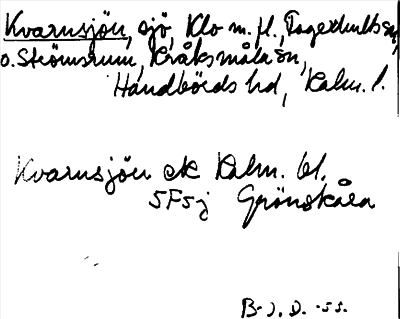 Kvarnsjön, sjö, Klo m. fl., Fagerhults sn,
o. Strömsrum, Kråksmåla sn,
Handbörds hd, Kalm. l.
Kvarnsjön ek Kalm. bl.
5F5j Grönskåra
B. J. D. -55.